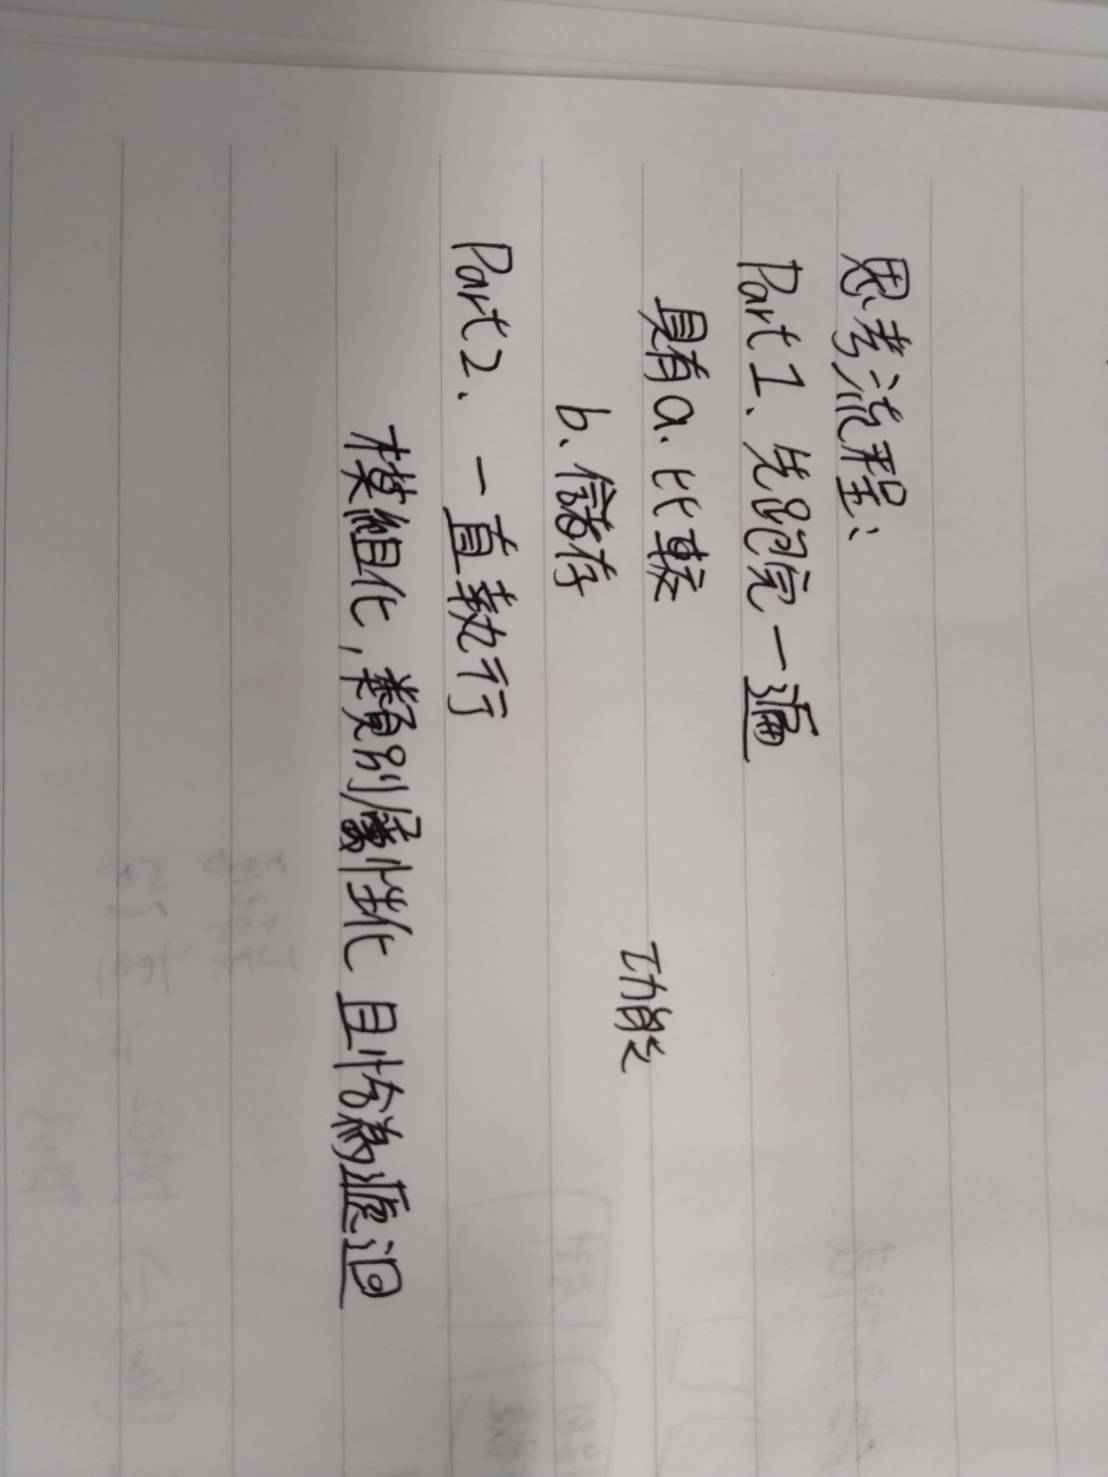 思考流程：
Part 1、先跑完一遍
具有 a. 比較
b. 儲存
功能
Part 2、一直執行
模組化，類別屬性化 且恰為遞迴